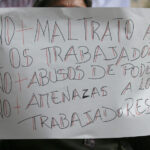 NO+MALTRATO A
LOS TRABAJADO
NO+ABUSOS DE PODE
NO+AMENAZAS A LO
TRABAJADORES